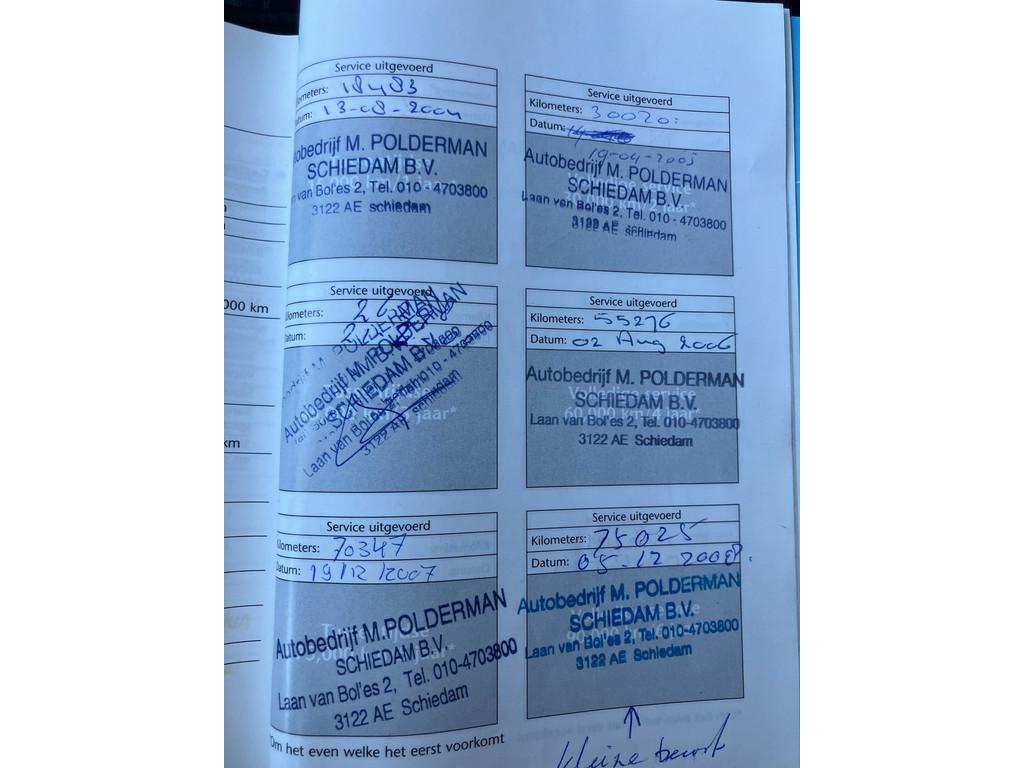 Service uitgevoerd
lometers: 18483
tum: 13-08-2004
obedrijf M. POLDERMAN
SCHIEDAM B.V.
van Bol'es 2, Tel. 010 - 4703800
3122 AE schiedam
Service uitgevoerd
Kilometers: 30020:
Datum:
19-04-2005
Autobedrijf M. POLDERMAN
Volledige service
SCHIEDAM B.V.
km/2 jaar*
Laan van Bol'es 2, Tel. 010 - 4703800
3122 AE schiedam
000 km
Service uitgevoerd
lometers:
Datum:
Autobedrijf M. POLDERMAN
SCHIEDAM B.V.
Laan van Bol'es 010 - 4703800
3122 AE schiedam
jaar*
Service uitgevoerd
Kilometers: 55276
Datum: 02 Aug 2006
Autobedrijf M. POLDERMAN
Volledige service
SCHIEDAM B.V.
60.000 km/4 jaar*
Laan van Bol'es 2, Tel. 010-4703800
3122 AE Schiedam
km
Service uitgevoerd
ilometers: 70347
Datum: 19/12/2007
Autobedrijf M. POLDERMAN
SCHIEDAM B.V.
Laan van Bol'es 2, Tel. 010-4703800
3122 AE Schiedam
Service uitgevoerd
Kilometers: 75025
Datum: 05-12 2008
Autobedrijf M. POLDERMAN
SCHIEDAM B.V.
Laan van Bol'es 2, Tel. 010-4703800
3122 AE Schiedam
*Om het even welke het eerst voorkomt
kleine beurt